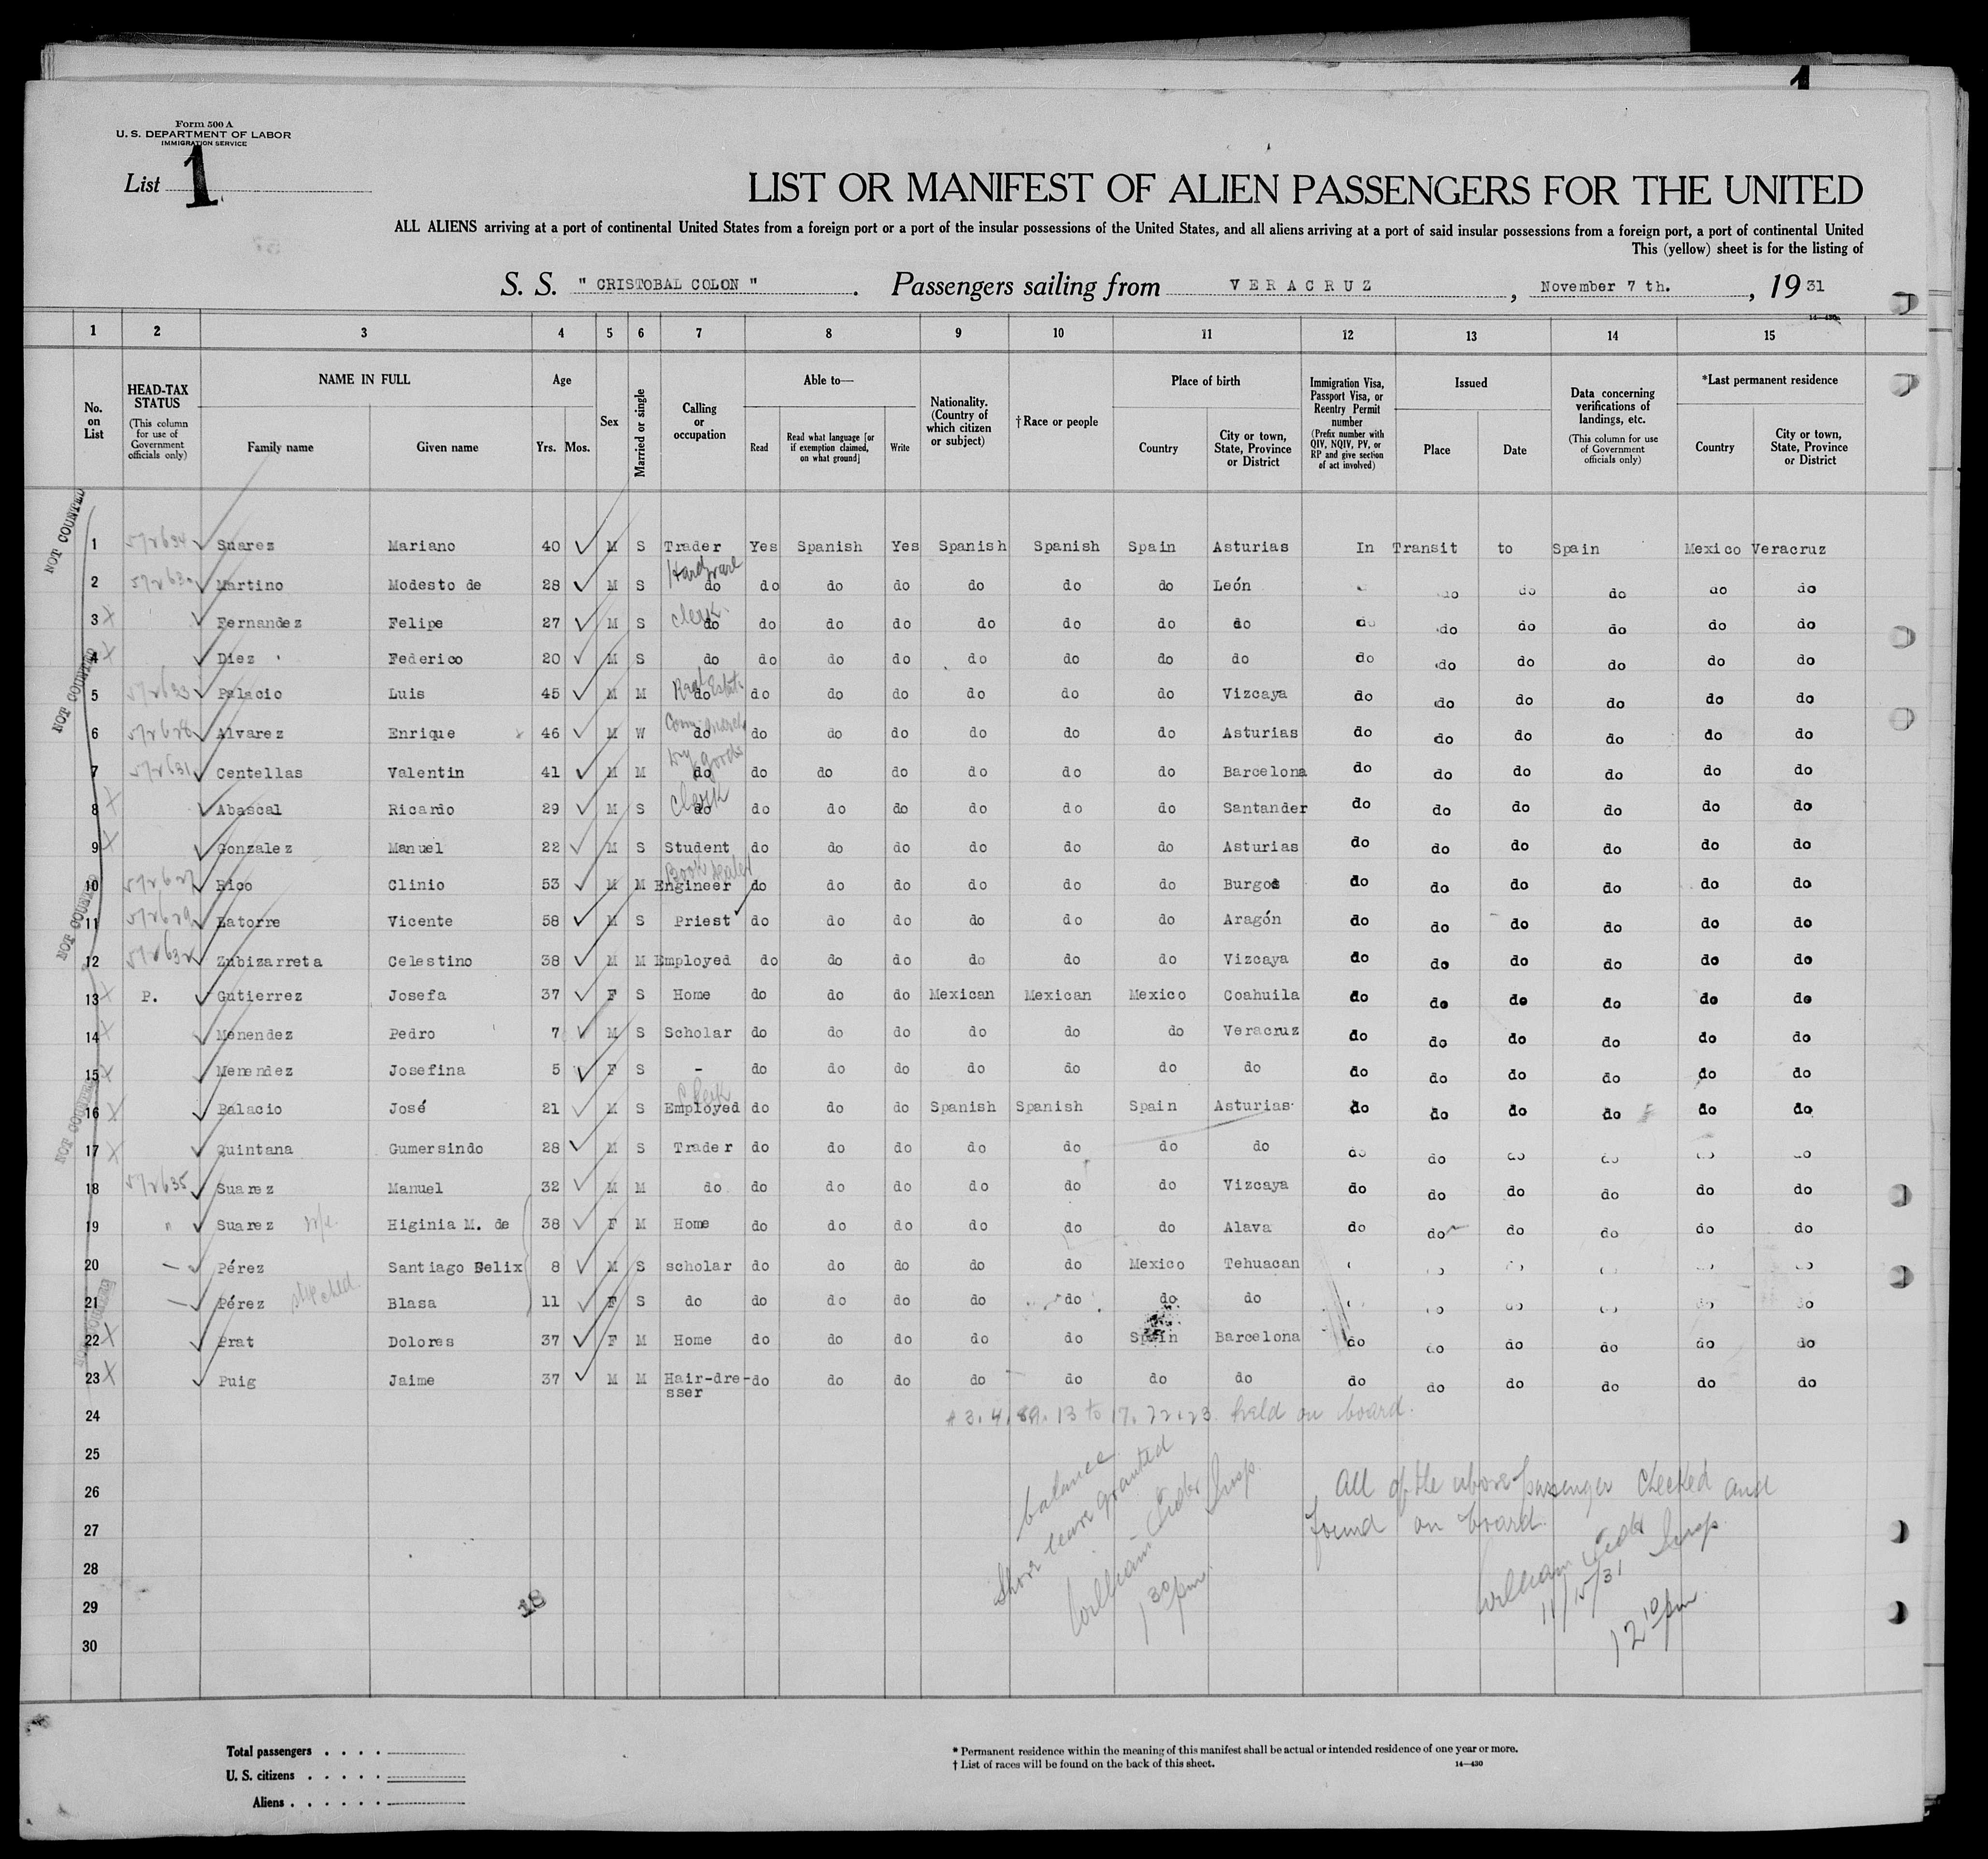 1
Form 500 A
U. S. DEPARTMENT OF LABOR
IMMIGRATION SERVICE
List 1
LIST OR MANIFEST OF ALIEN PASSENGERS FOR THE UNITED
ALL ALIENS arriving at a port of continental United States from a foreign port or a port of the insular possessions of the United States, and all aliens arriving at a port of said insular possessions from a foreign port, a port of continental United
This (yellow) sheet is for the listing of
S. S. " CRISTOBAL COLON " . Passengers sailing from VERACRUZ , November 7 th. , 19 31
14-430
1 2 3 4 5 6 7 8 9 10 11 12 13 14 15
No. on List
HEAD-TAX STATUS (This column for use of Government officials only)
NAME IN FULL
Family name Given name
Age
Yrs. Mos.
Sex
Married or single
Calling or occupation
Able to—
Read Read what language [or if exemption claimed, on what ground] Write
Nationality. (Country of which citizen or subject)
† Race or people
Place of birth
Country City or town, State, Province or District
Immigration Visa, Passport Visa, or Reentry Permit number (Prefix number with QIV, NQIV, PV, or RP and give section of act involved)
Issued
Place Date
Data concerning verifications of landings, etc. (This column for use of Government officials only)
*Last permanent residence
Country City or town, State, Province or District
NOT COUNTED
1 572634 Suarez Mariano 40 M S Trader Yes Spanish Yes Spanish Spanish Spain Asturias In Transit to Spain Mexico Veracruz
Hardware
2 572630 Martino Modesto de 28 M S do do do do do do do León do do do do do
Clerk
3 X Fernandez Felipe 27 M S do do do do do do do do do do do do do do
4 X Diez Federico 20 M S do do do do do do do do do do do do do do
NOT COUNTED
Real Estate
5 572633 Palacio Luis 45 M M do do do do do do do Vizcaya do do do do do do
6 572628 Alvarez Enrique 46 M W do do do do do do do Asturias do do do do do do
Dry goods
7 572631 Centellas Valentin 41 M M do do do do do do do Barcelona do do do do do do
Clerk
8 X Abascal Ricardo 29 M S do do do do do do do Santander do do do do do do
9 X Gonzalez Manuel 22 M S Student do do do do do do Asturias do do do do do do
Book dealer
10 572627 Rico Clinio 53 M M Engineer do do do do do do Burgos do do do do do do
NOT COUNTED
11 572629 Latorre Vicente 58 M S Priest do do do do do do Aragón do do do do do do
12 572632 Zubizarreta Celestino 38 M M Employed do do do do do do Vizcaya do do do do do do
13 X P. Gutierrez Josefa 37 F S Home do do do Mexican Mexican Mexico Coahuila do do do do do do
14 X Menendez Pedro 7 M S Scholar do do do do do do Veracruz do do do do do do
15 X Menendez Josefina 5 F S - do do do do do do do do do do do do do
NOT COUNTED
Clerk
16 X Balacio José 21 M S Employed do do do Spanish Spanish Spain Asturias do do do do do do
17 X Quintana Gumersindo 28 M S Trader do do do do do do do do do do do do do
18 572635 Suarez Manuel 32 M M do do do do do do do Vizcaya do do do do do do
19 " Suarez wife Higinia M. de 38 F M Home do do do do do do Alava do do do do do do
20 — Pérez Santiago Felix 8 M S scholar do do do do do Mexico Tehuacan do do do
21 — Pérez step child. Blasa 11 F S do do do do do do do do do do do do do do
22 X Prat Dolores 37 F M Home do do do do do Spain Barcelona do do do do do do
23 X Puig Jaime 37 M M Hair-dresser do do do do do do do do do do do do do
24 # 3. 4. 89. 13 to 17. 22. 23. held on board.
25
26
27
28
29
30
balance
Shore leave granted
William Insp.
1 30 pm.
All of the above passenger checked and
found on board.
William Insp.
11/15/31
12 10 pm
18
Total passengers
U. S. citizens
Aliens
* Permanent residence within the meaning of this manifest shall be actual or intended residence of one year or more.
† List of races will be found on the back of this sheet.
14—430